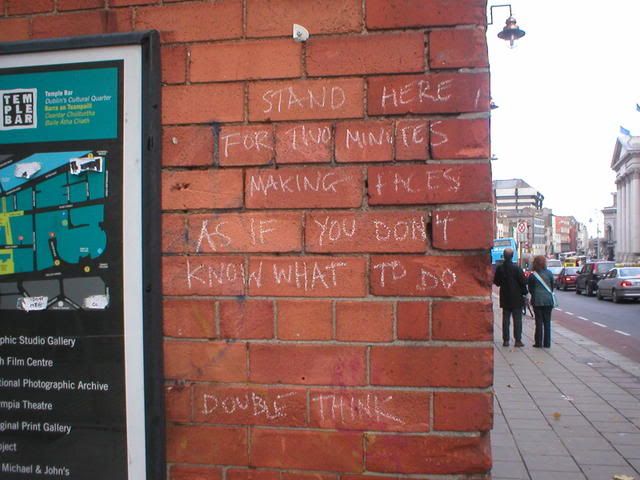 TEM
PLE
BAR
Temple Bar
Dublin's Cultural Quarter
Barra an Teampaill
Ceantar Chultúrtha
Baile Átha Cliath
phic Studio Gallery
h Film Centre
tional Photographic Archive
ympia Theatre
iginal Print Gallery
oject
Michael & John's
STAND HERE,
FOR TWO MINUTES
MAKING FACES
AS IF YOU DON'T
KNOW WHAT TO DO
DOUBLE THINK